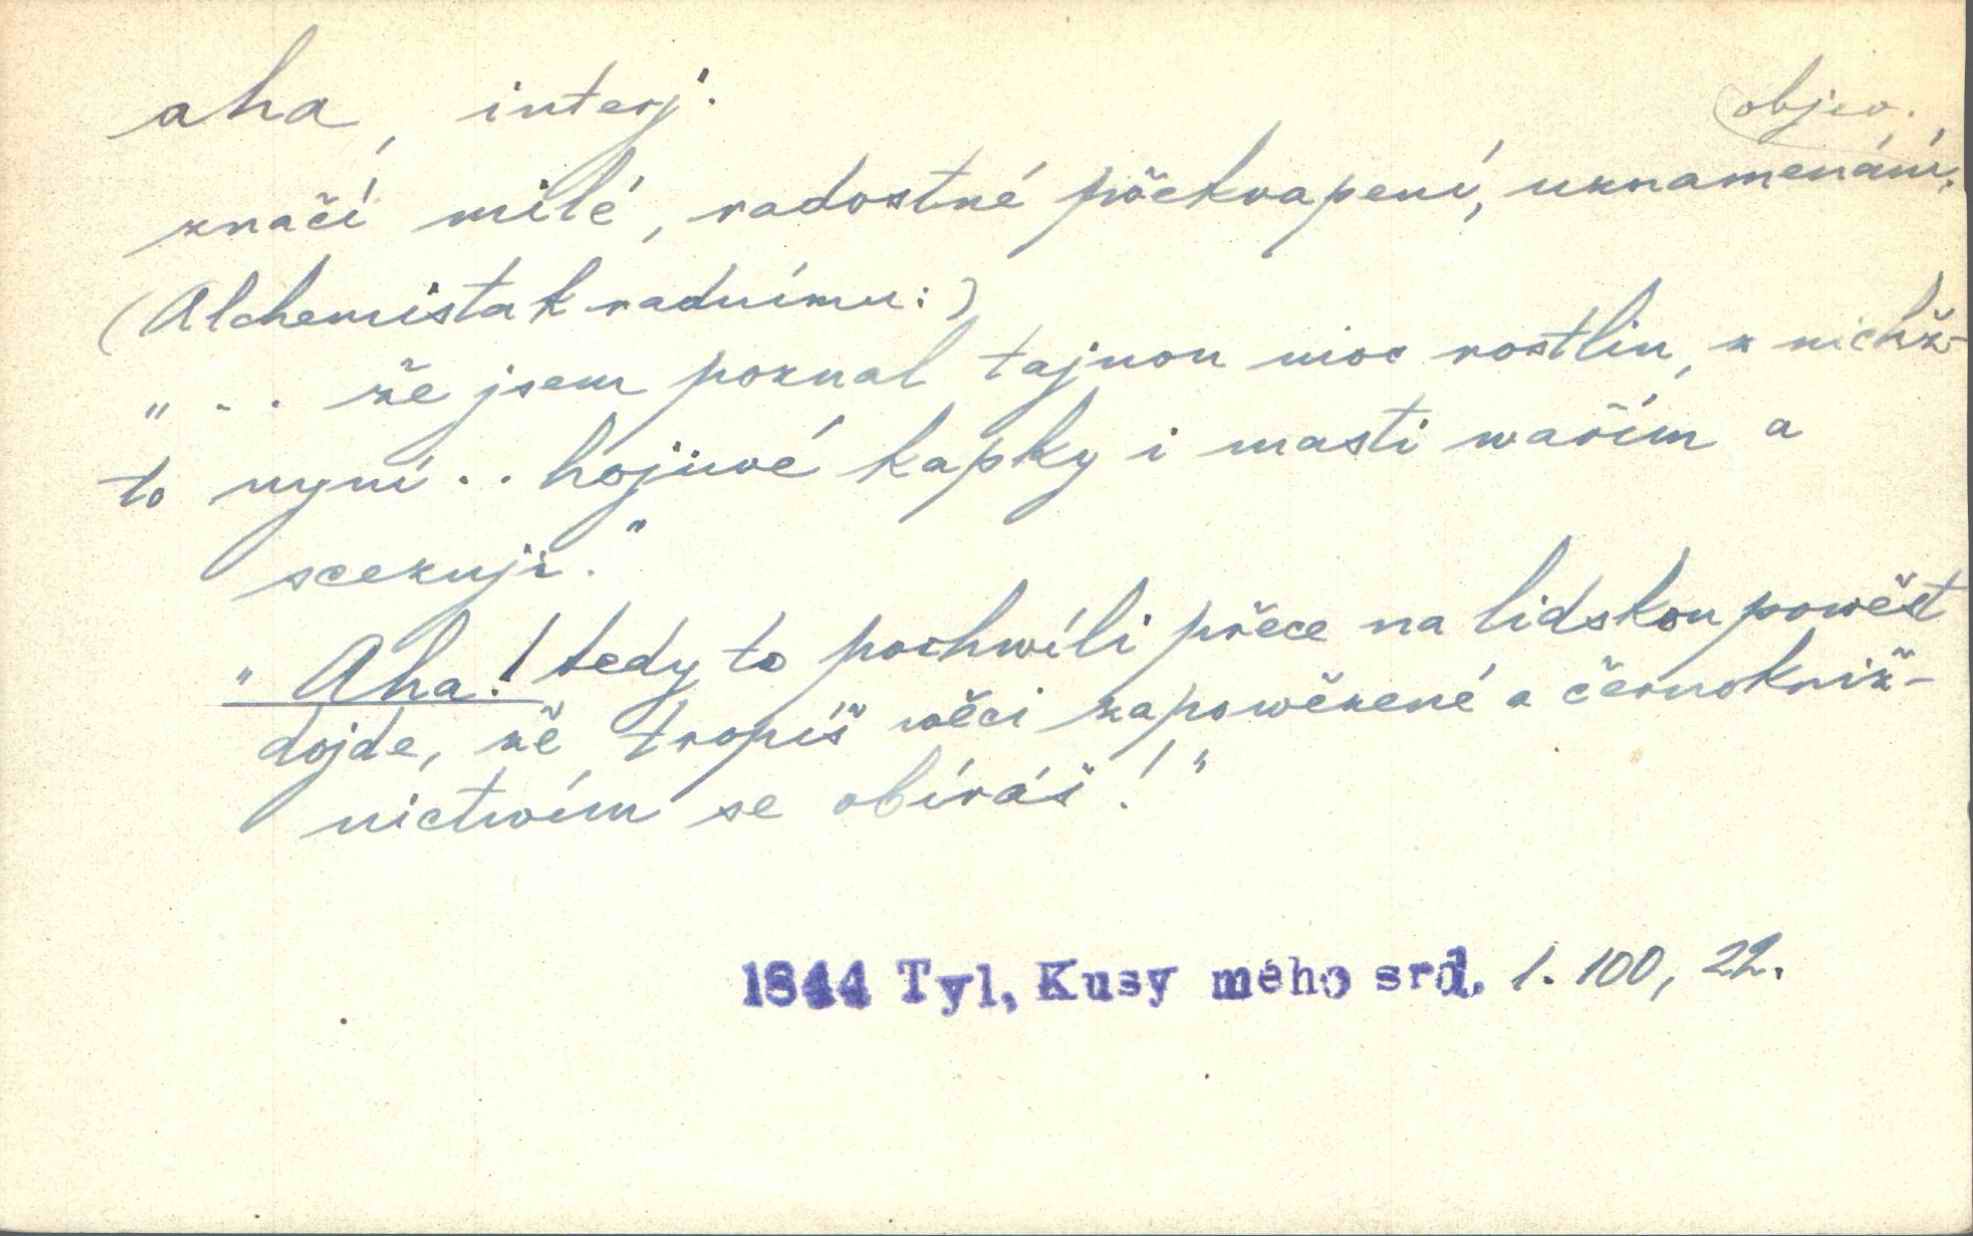 aha, interj.
objev.
značí milé, radostné překvapení, uznamenání.
(Alchemista k radnímu:)
"... že jsem poznal tajnou moc rostlin, z nichž-
to nyní .. hojiwé kapky i masti wařím a
scezuji."
"Aha! tedy to pochwíli přece na lidskou powěst
dojde, že tropíš wěci zapowězené a černokniž-
nictwím se obíráš!"
1844 Tyl, Kusy mého srd. 1. 100, 22.